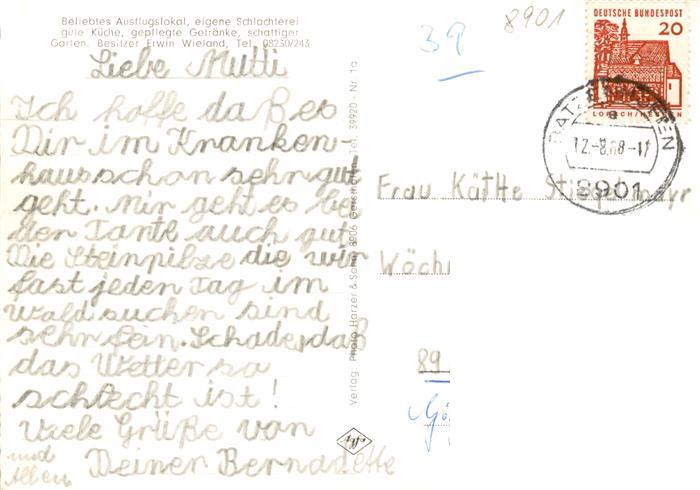 Beliebtes Ausflugslokal, eigene Schlachterei
gute Küche, gepflegte Getränke, schattiger
Garten. Besitzer Erwin Wieland, Tel. 08230/243
Liebe Mutti
Ich hoffe daß es
Dir im Kranken-
haus schon sehr gut
geht. Mir geht es bei
der Tante auch gut
Die Steinpilze die wir
fast jeden Tag im
Wald suchen sind
sehr fein. Schade, daß
das Wetter so
schlecht ist!
Viele Grüße von
und Allen
Deiner Bernadette
Verlag: Photo Harzer & Sohn, 8906 Tel. 39920 - Nr. 1a
Agfa
39
8901
DEUTSCHE BUNDESPOST
20
LORSCH/HESSEN
12.-8.68-17
8901
Frau Käthe
89